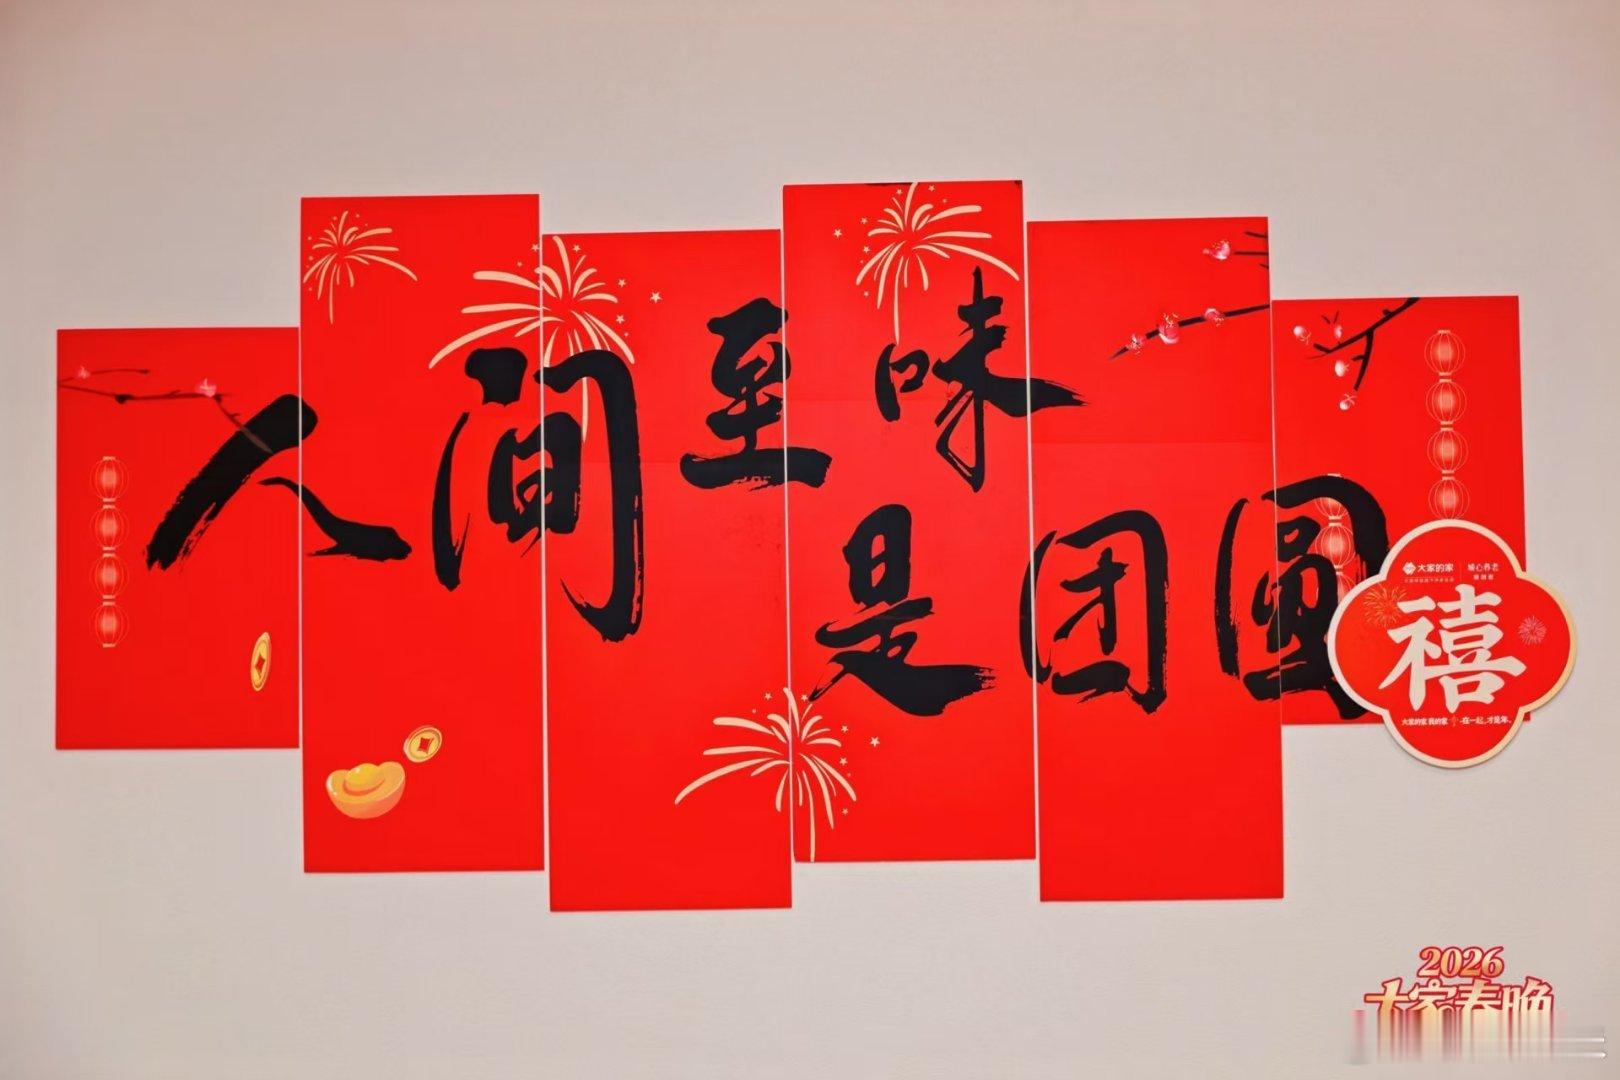 人间至味
是团圆
大家的家
城心养老
禧
大家的家 我的家 在一起,才是年。
2026
大家春晚